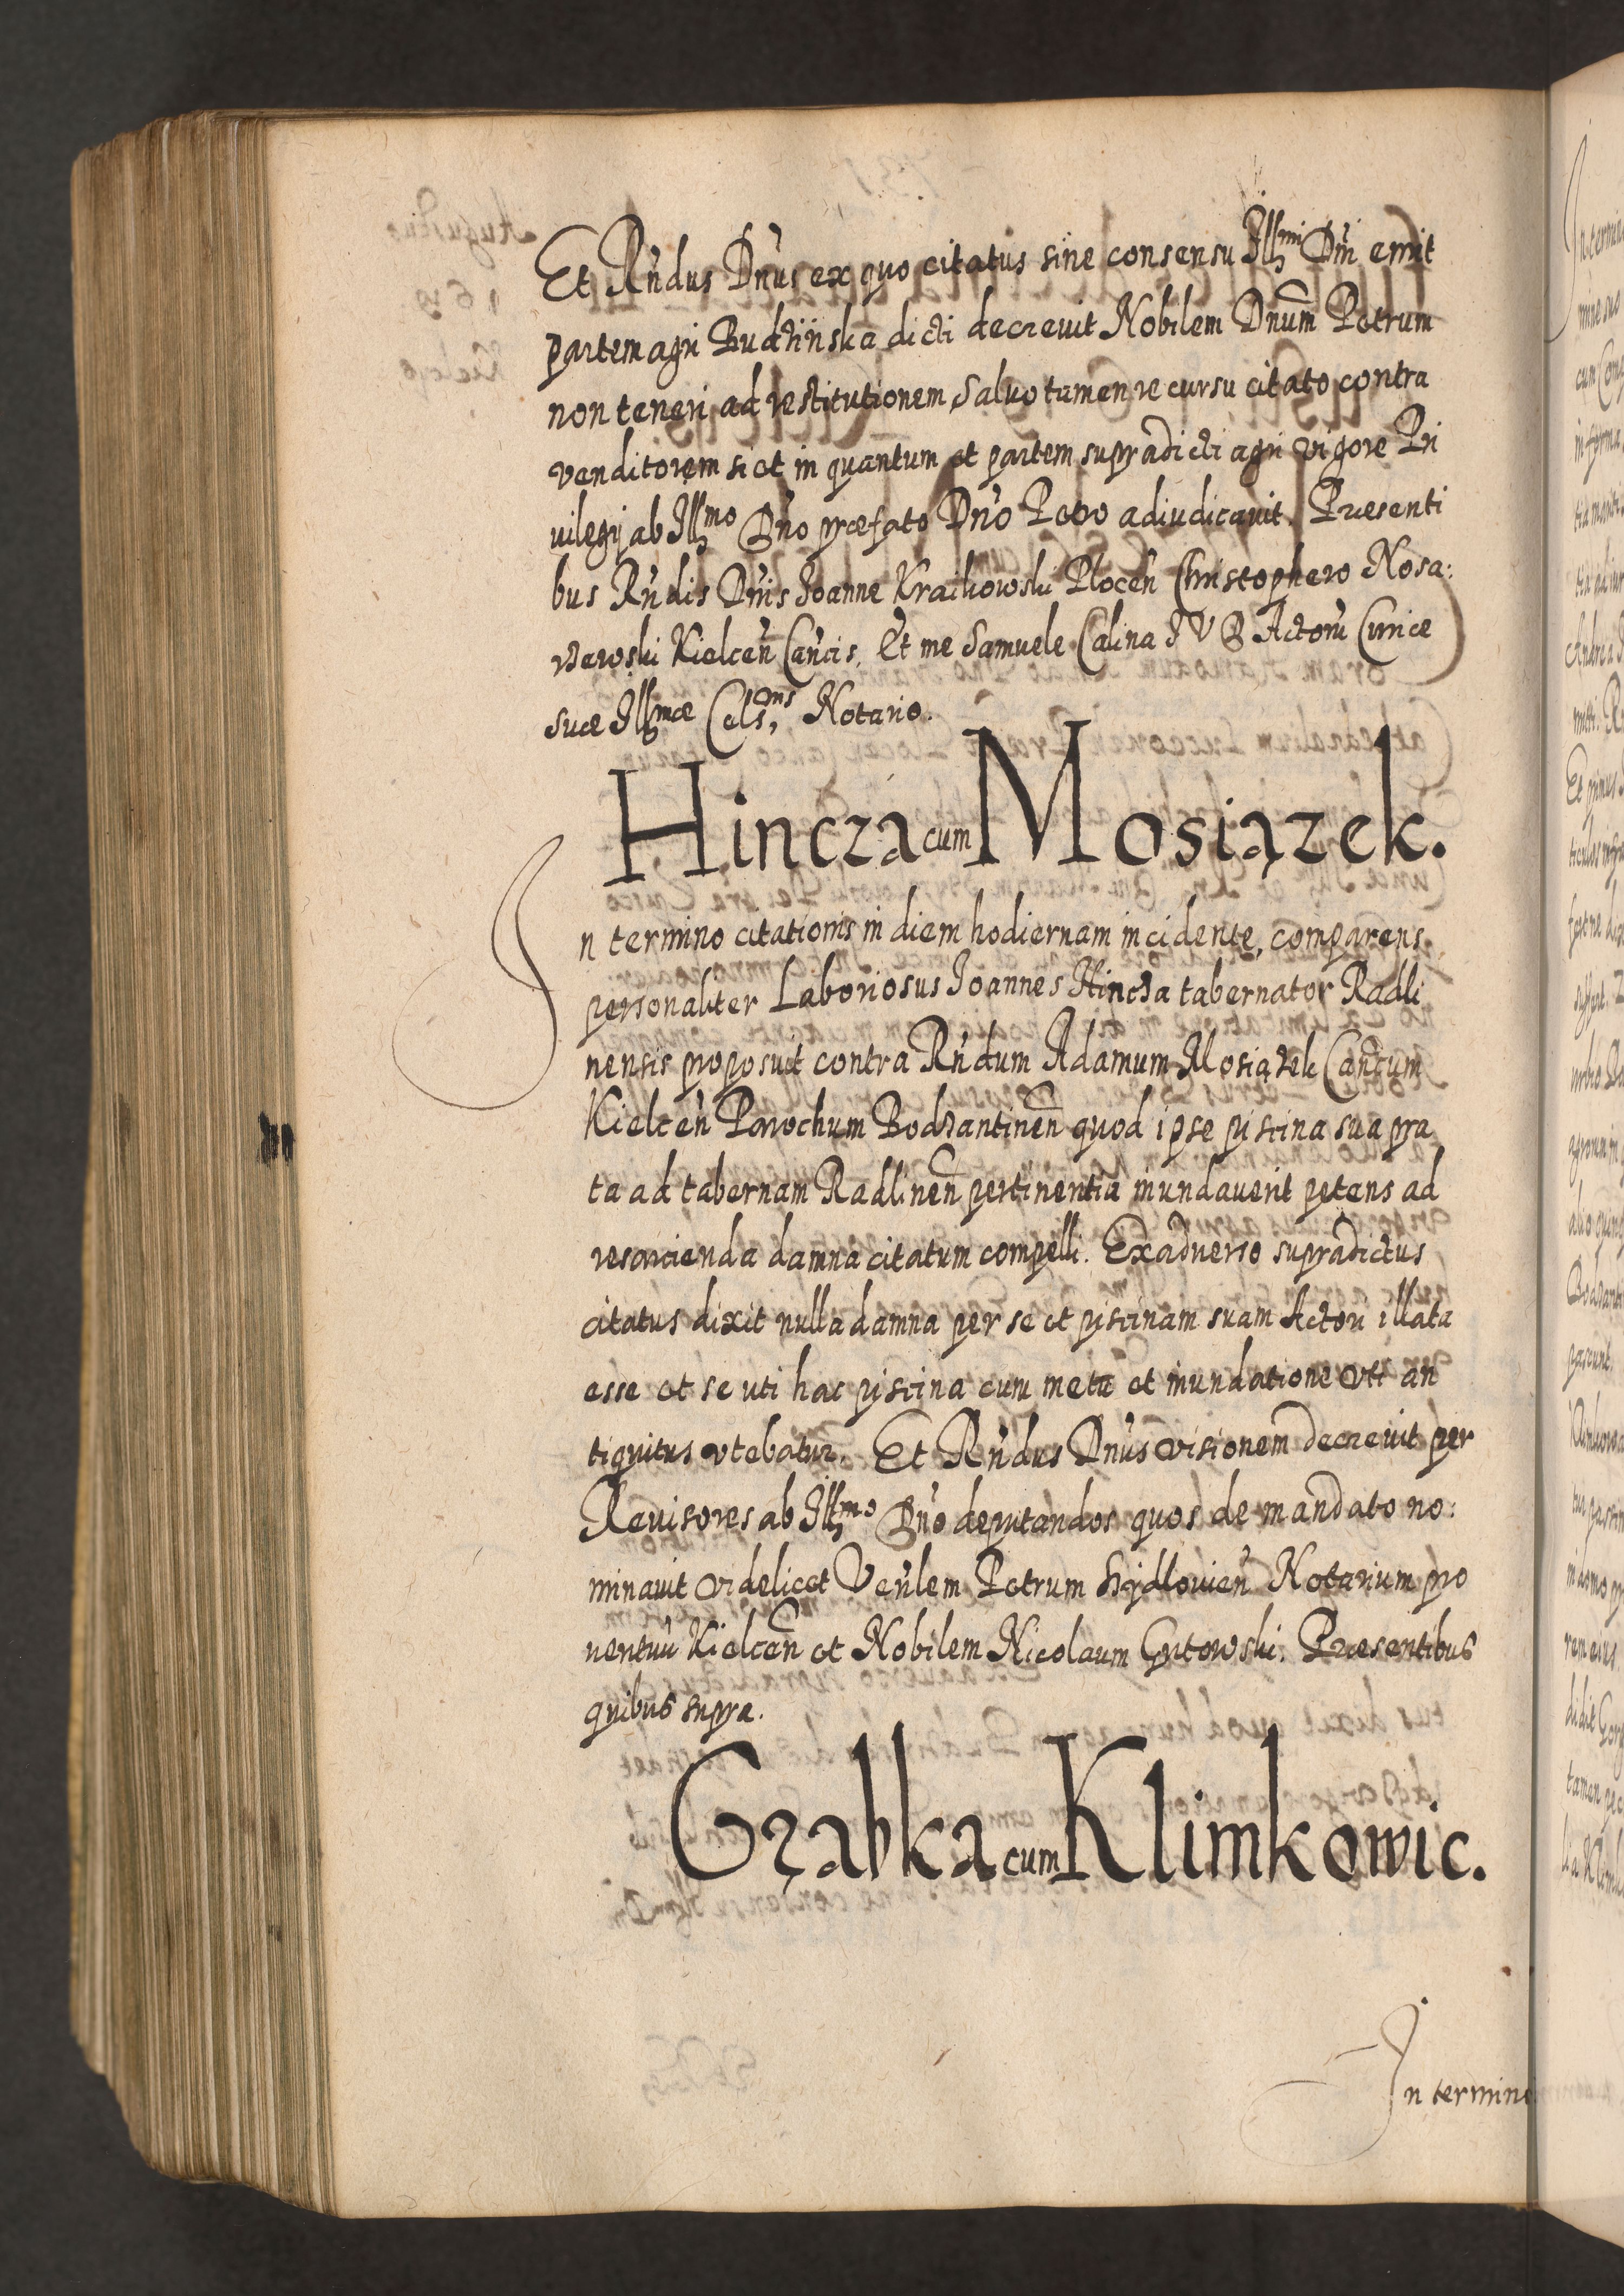 Et Rndus Dnus ex quo citatus sine consensu Illmi Dni emit
partem agri Budziinska dicti decrevit Nobilem Dnum Petrum
non teneri ad restitutionem, salvo tamen recursu citato contra
venditorem si et in quantum et partem supradicti agri vigore Pri
vilegij ab Illmo Dno præfato Dno Petro adiudicavit. Præsenti
bus Rndis Dnis Joanne Kraikowski Plocen Christophero Nosa:
Kielcen Cancis, Et me Samuele Calina I V D Actoru Curiæ
suæ Illmæ Notario.
Hincza cum Mosiązek.
In termino citationis in diem hodiernam incidente, comparens
personaliter Laboriosus Joannes Hincza tabernator Radli
nensis proposuit contra Rndum Adamum Mosiązek Cancum
Kielcen Parochum Bodzantinen quod ipse piscina sua pra
ta ad tabernam Radlinen pertinentia inundaverit petens ad
resarcienda damna citatum compelli. Ex adverso supradictus
citatus dixit nulla damna per se et piscinam suam Actori illata
esse et se uti hac piscina cum meta et inundatione uti an
tiquitus utebatur. Et Rndus Dnus visionem decrevit per
Revisores ab Illmo Dno deputandos quos de mandato no:
minavit videlicet Venlem Petrum Szydlovien Notarium pro
ventuu Kielcen et Nobilem Nicolaum Gutowski. Præsentibus
quibus supra.
Grabka cum Klimkowic.
In termino